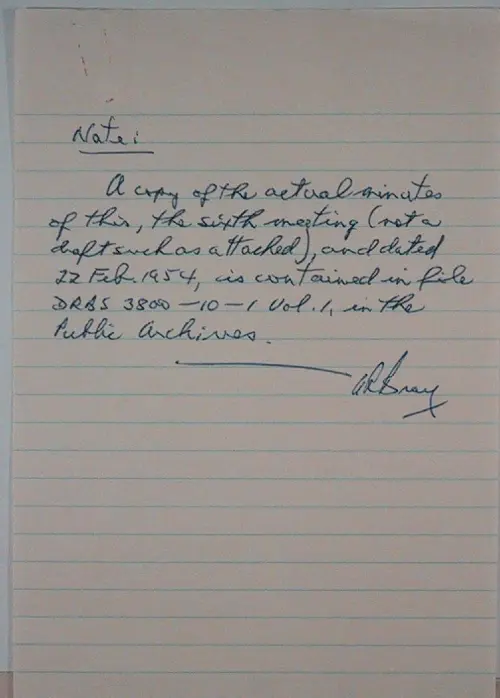 Note:
A copy of the actual minutes
of this, the sixth meeting (not a
draft such as attached), and dated
22 Feb. 1954, is contained in file
DRBS 3800-10-1 Vol. 1, in the
Public Archives.
ARBray